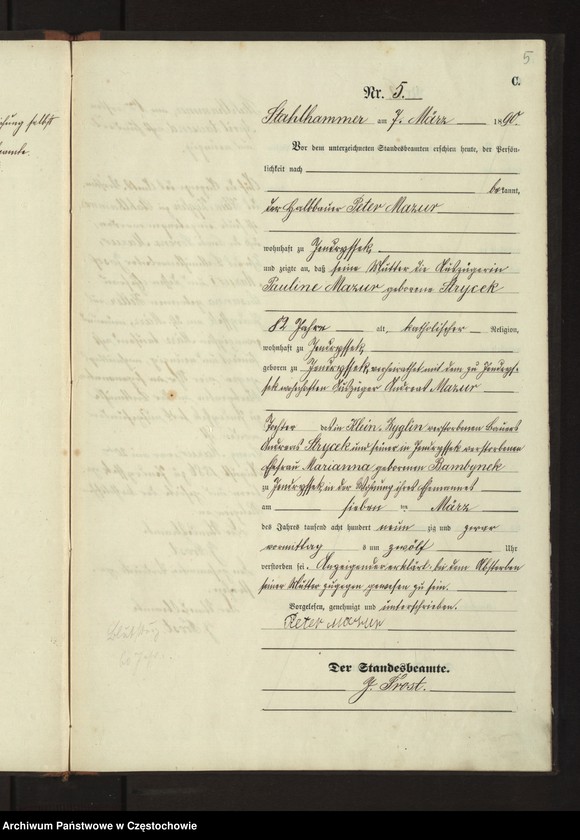 5
C.
Nr. 5.
Stahlhammer am 7. März 1890.
Vor dem unterzeichneten Standesbeamten erschien heute, der Persön-
lichkeit nach
bekannt,
der Halbbauer Peter Mazur
wohnhaft zu Jendryssek
und zeigte an, daß seine Mutter die Auszügerin
Pauline Mazur geborene Strycek
82 Jahre alt, katholischer Religion,
wohnhaft zu Jendryssek,
geboren zu Jendryssek, verheirathet mit dem zu Jendrys-
sek wohnhaften Auszüger Andreas Mazur
Tochter des in Klein-Zyglin verstorbenen Bauers
Andreas Strycek und seiner in Jendryssek verstorbenen
Ehefrau Marianna geborenen Bambynek
zu Jendryssek, in der Wohnung ihres Ehemannes
am sieben ten März
des Jahres tausend acht hundert neun zig und zwar
vormittag s um zwölf Uhr
verstorben sei. Anzeigender erklärt: bei dem Absterben
seiner Mutter zugegen gewesen zu sein.
Vorgelesen, genehmigt und unterschrieben.
Peter Mazur
Der Standesbeamte.
J. Prost.
Archiwum Państwowe w Częstochowie